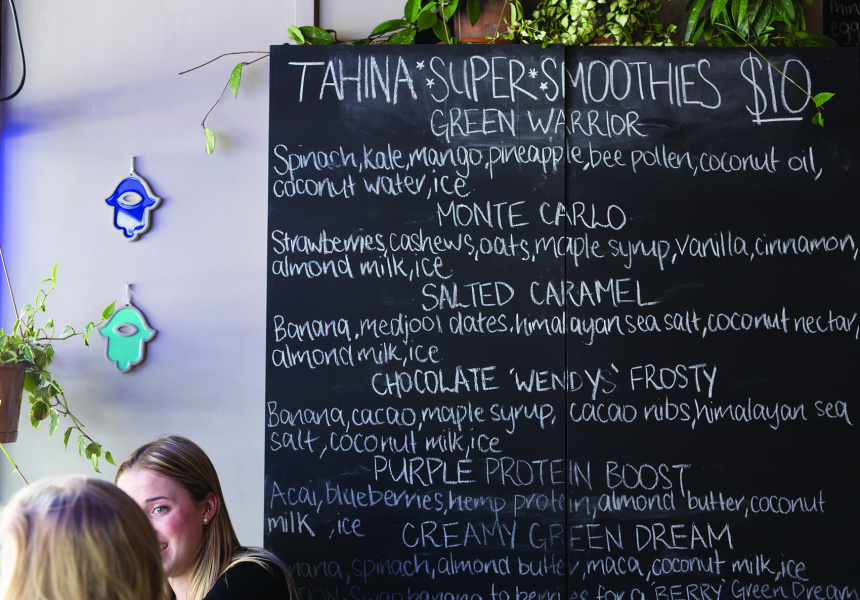 TAHINA*SUPER*SMOOTHIES $10
GREEN WARRIOR
Spinach, kale, mango, pineapple, bee pollen, coconut oil,
coconut water, ice
MONTE CARLO
Strawberries, cashews, oats, maple syrup, vanilla, cinnamon,
almond milk, ice
SALTED CARAMEL
Banana, medjool dates, himalayan sea salt, coconut nectar,
almond milk, ice
CHOCOLATE 'WENDYS' FROSTY
Banana, cacao, maple syrup, cacao nibs, himalayan sea
salt, coconut milk, ice
PURPLE PROTEIN BOOST
Acai, blueberries, hemp protein, almond butter, coconut
milk, ice
CREAMY GREEN DREAM
spinach, almond butter, maca, coconut milk, ice
Swap banana to berries for a BERRY Green Dream